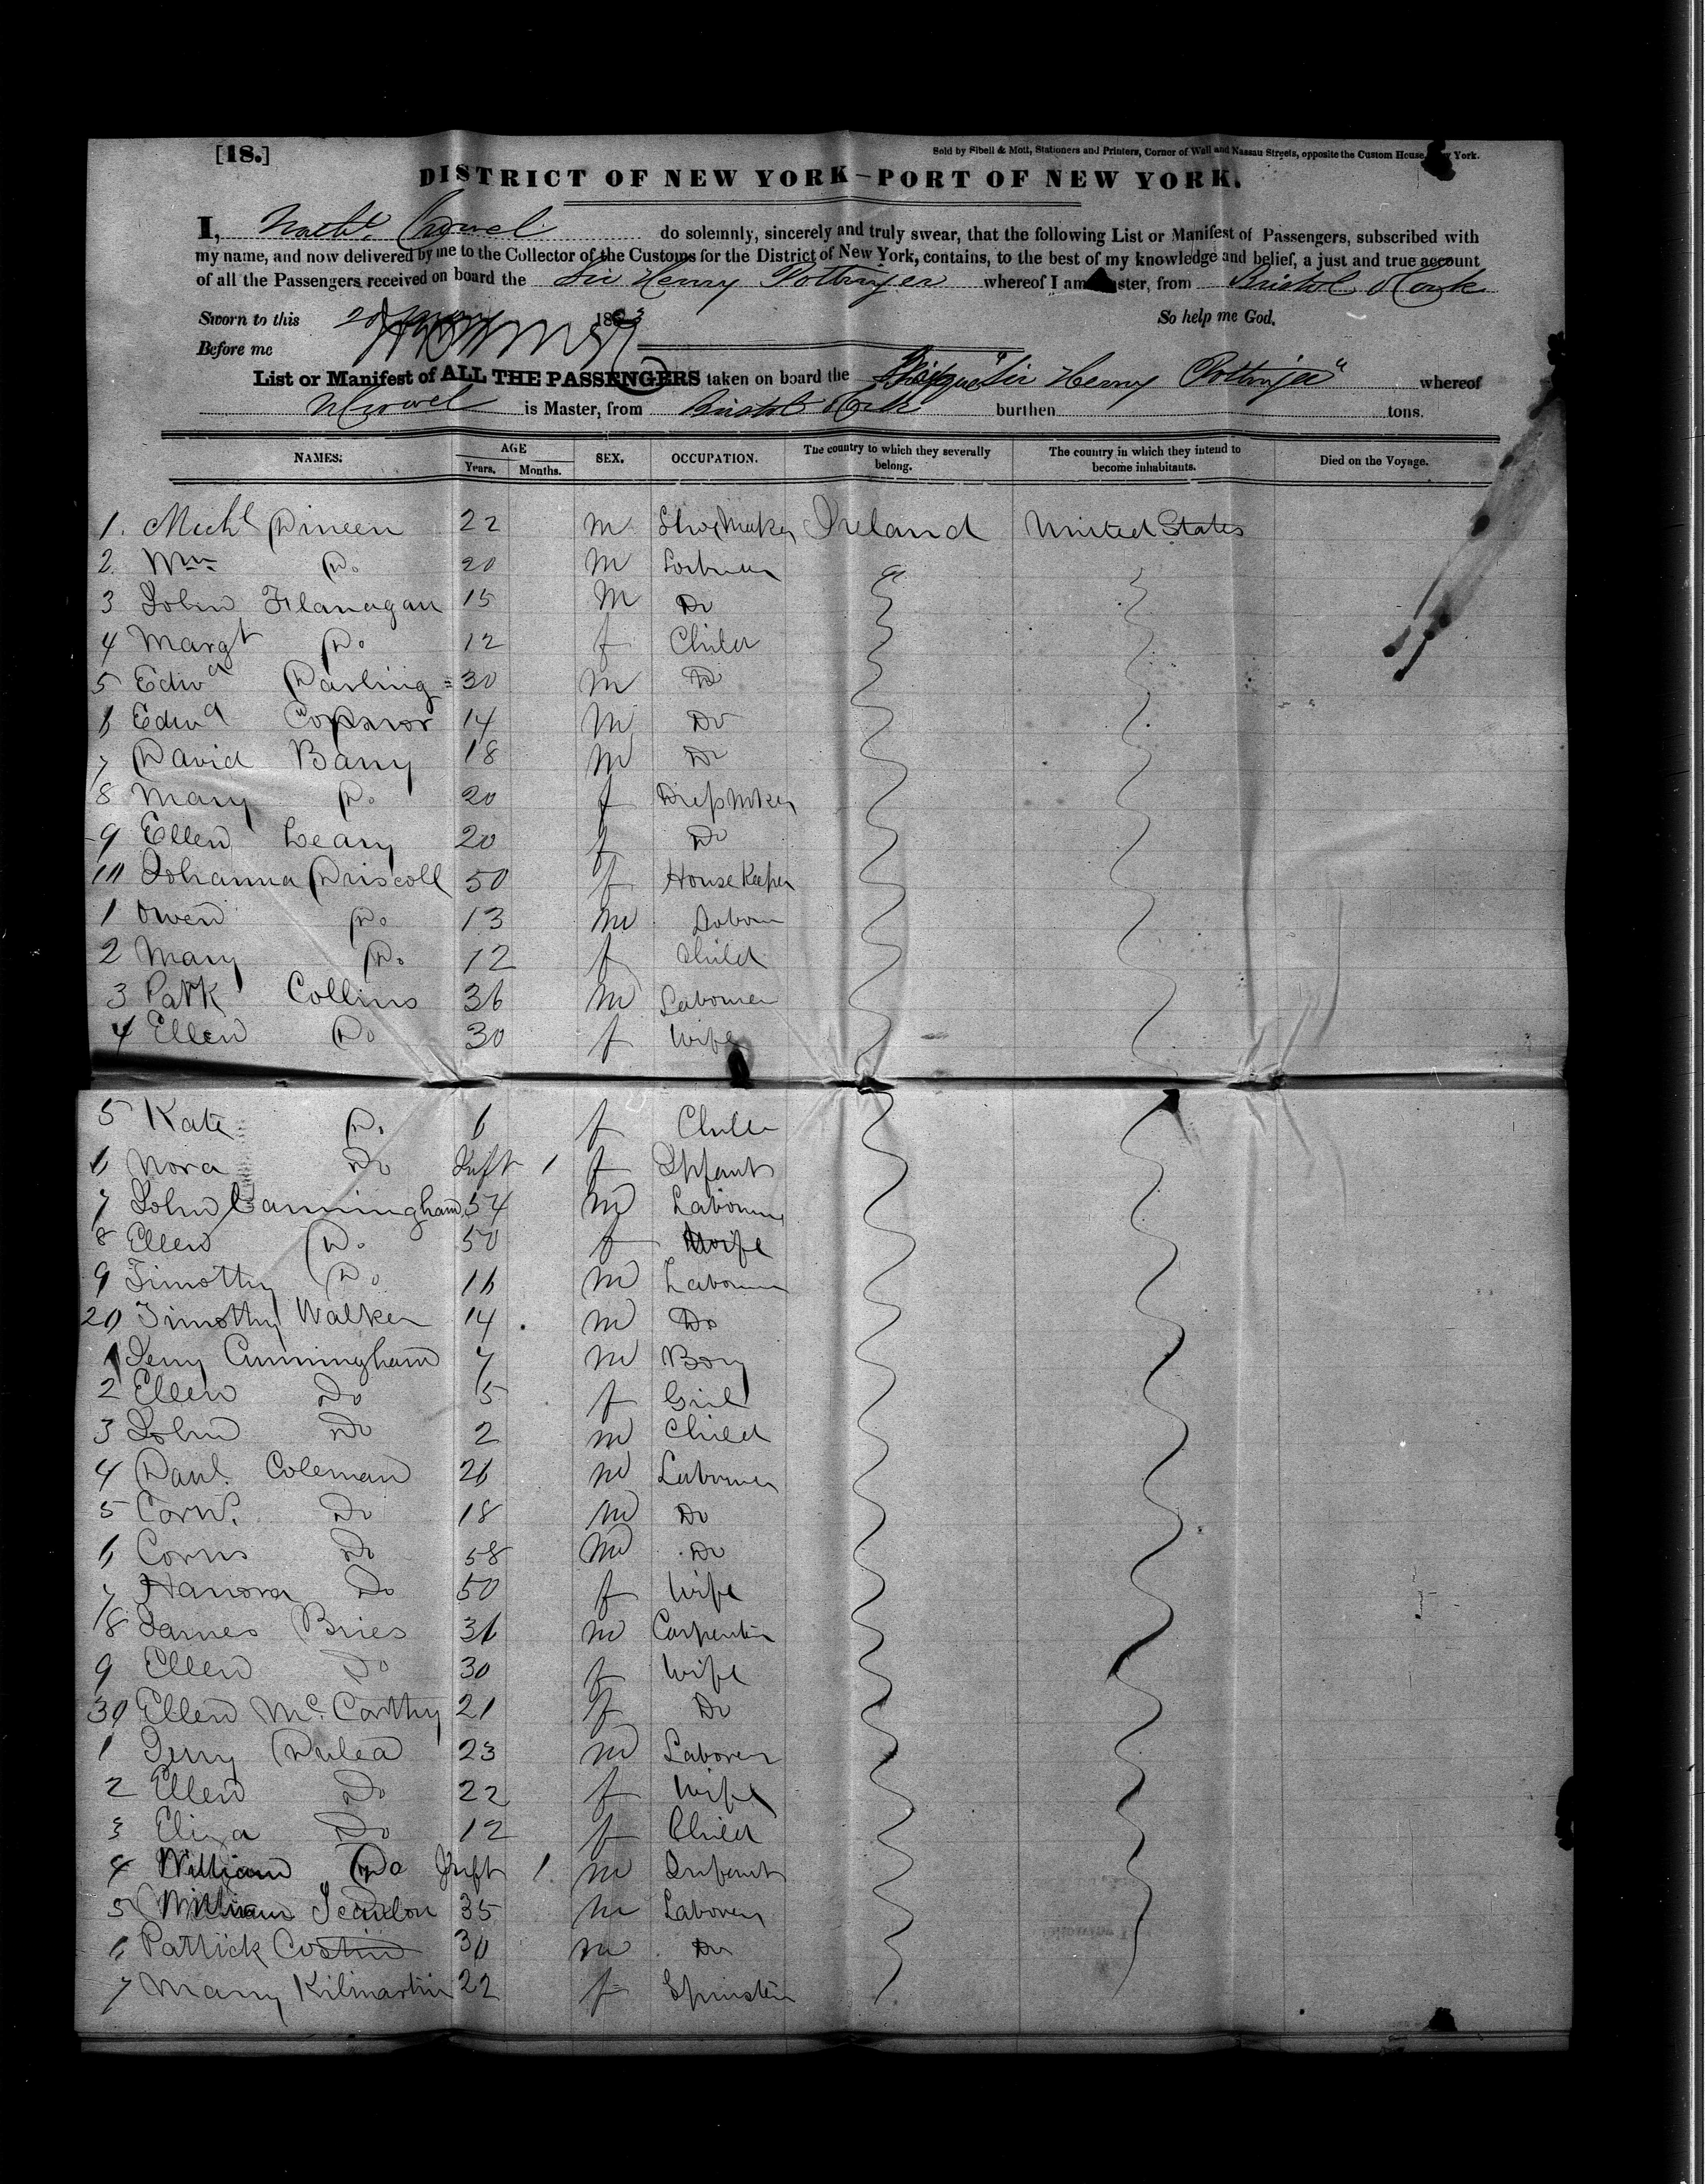 [18.]
Sold by Sibell & Mott, Stationers and Printers, Corner of Wall and Nassau Streets, opposite the Custom House, York.
DISTRICT OF NEW YORK—PORT OF NEW YORK.
I, do solemnly, sincerely and truly swear, that the following List or Manifest of Passengers, subscribed with
my name, and now delivered by me to the Collector of the Customs for the District of New York, contains, to the best of my knowledge and belief, a just and true account
of all the Passengers received on board the Sir Henry Pottinger whereof I am ster, from Bristol & Cork
Sworn to this 18 3 So help me God.
Before me
List or Manifest of ALL THE PASSENGERS taken on board the "Sir Henry Pottinger" whereof
is Master, from Bristol & Cork burthen tons.
NAMES. AGE Years. Months. SEX. OCCUPATION. The country to which they severally belong. The country in which they intend to become inhabitants. Died on the Voyage.
1. Michl Dineen 22 M Shoe Maker Ireland United States
2. Wm Do 20 M
3 John Flanagan 15 M Do
4 Margt Do 12 f Child
5 Edwd Darling 30 M Do
6 Edwd Connor 14 M Do
7 David Barry 18 M Do
8 Mary Do 20 f Dress Mker
9 Ellen Leary 20 f Do
10 Johanna Driscoll 50 f House Keeper
1 Owen Do 13 M
2 Mary Do 12 f Child
3 Patk Collins 36 M Labourer
4 Ellen Do 30 f Wife
5 Kate Do 6 f Child
6 Nora Do Inft 1 f Infant
7 John Cunningham 54 M Labourer
8 Ellen Do 50 f Wife
9 Timothy Do 16 M Labourer
20 Timothy Walker 14 M Do
1 Jerry Cunningham 7 M Boy
2 Ellen Do 5 f Girl
3 John Do 2 M Child
4 Danl. Coleman 26 M Labourer
5 Corns. Do 18 M Do
6 Corns Do 58 M Do
7 Hanora Do 50 f Wife
8 James Bries 36 M Carpenter
9 Ellen Do 30 f Wife
30 Ellen Mc.Carthy 21 f Do
1 Jerry Dulea 23 M Laborer
2 Ellen Do 22 f Wife
3 Eliza Do 12 f Child
4 William Do Inft 1 M Infant
5 William Scanlon 35 M Laborer
6 Patrick Costin 30 M Do
7 Mary Kilmartin 22 f Spinster